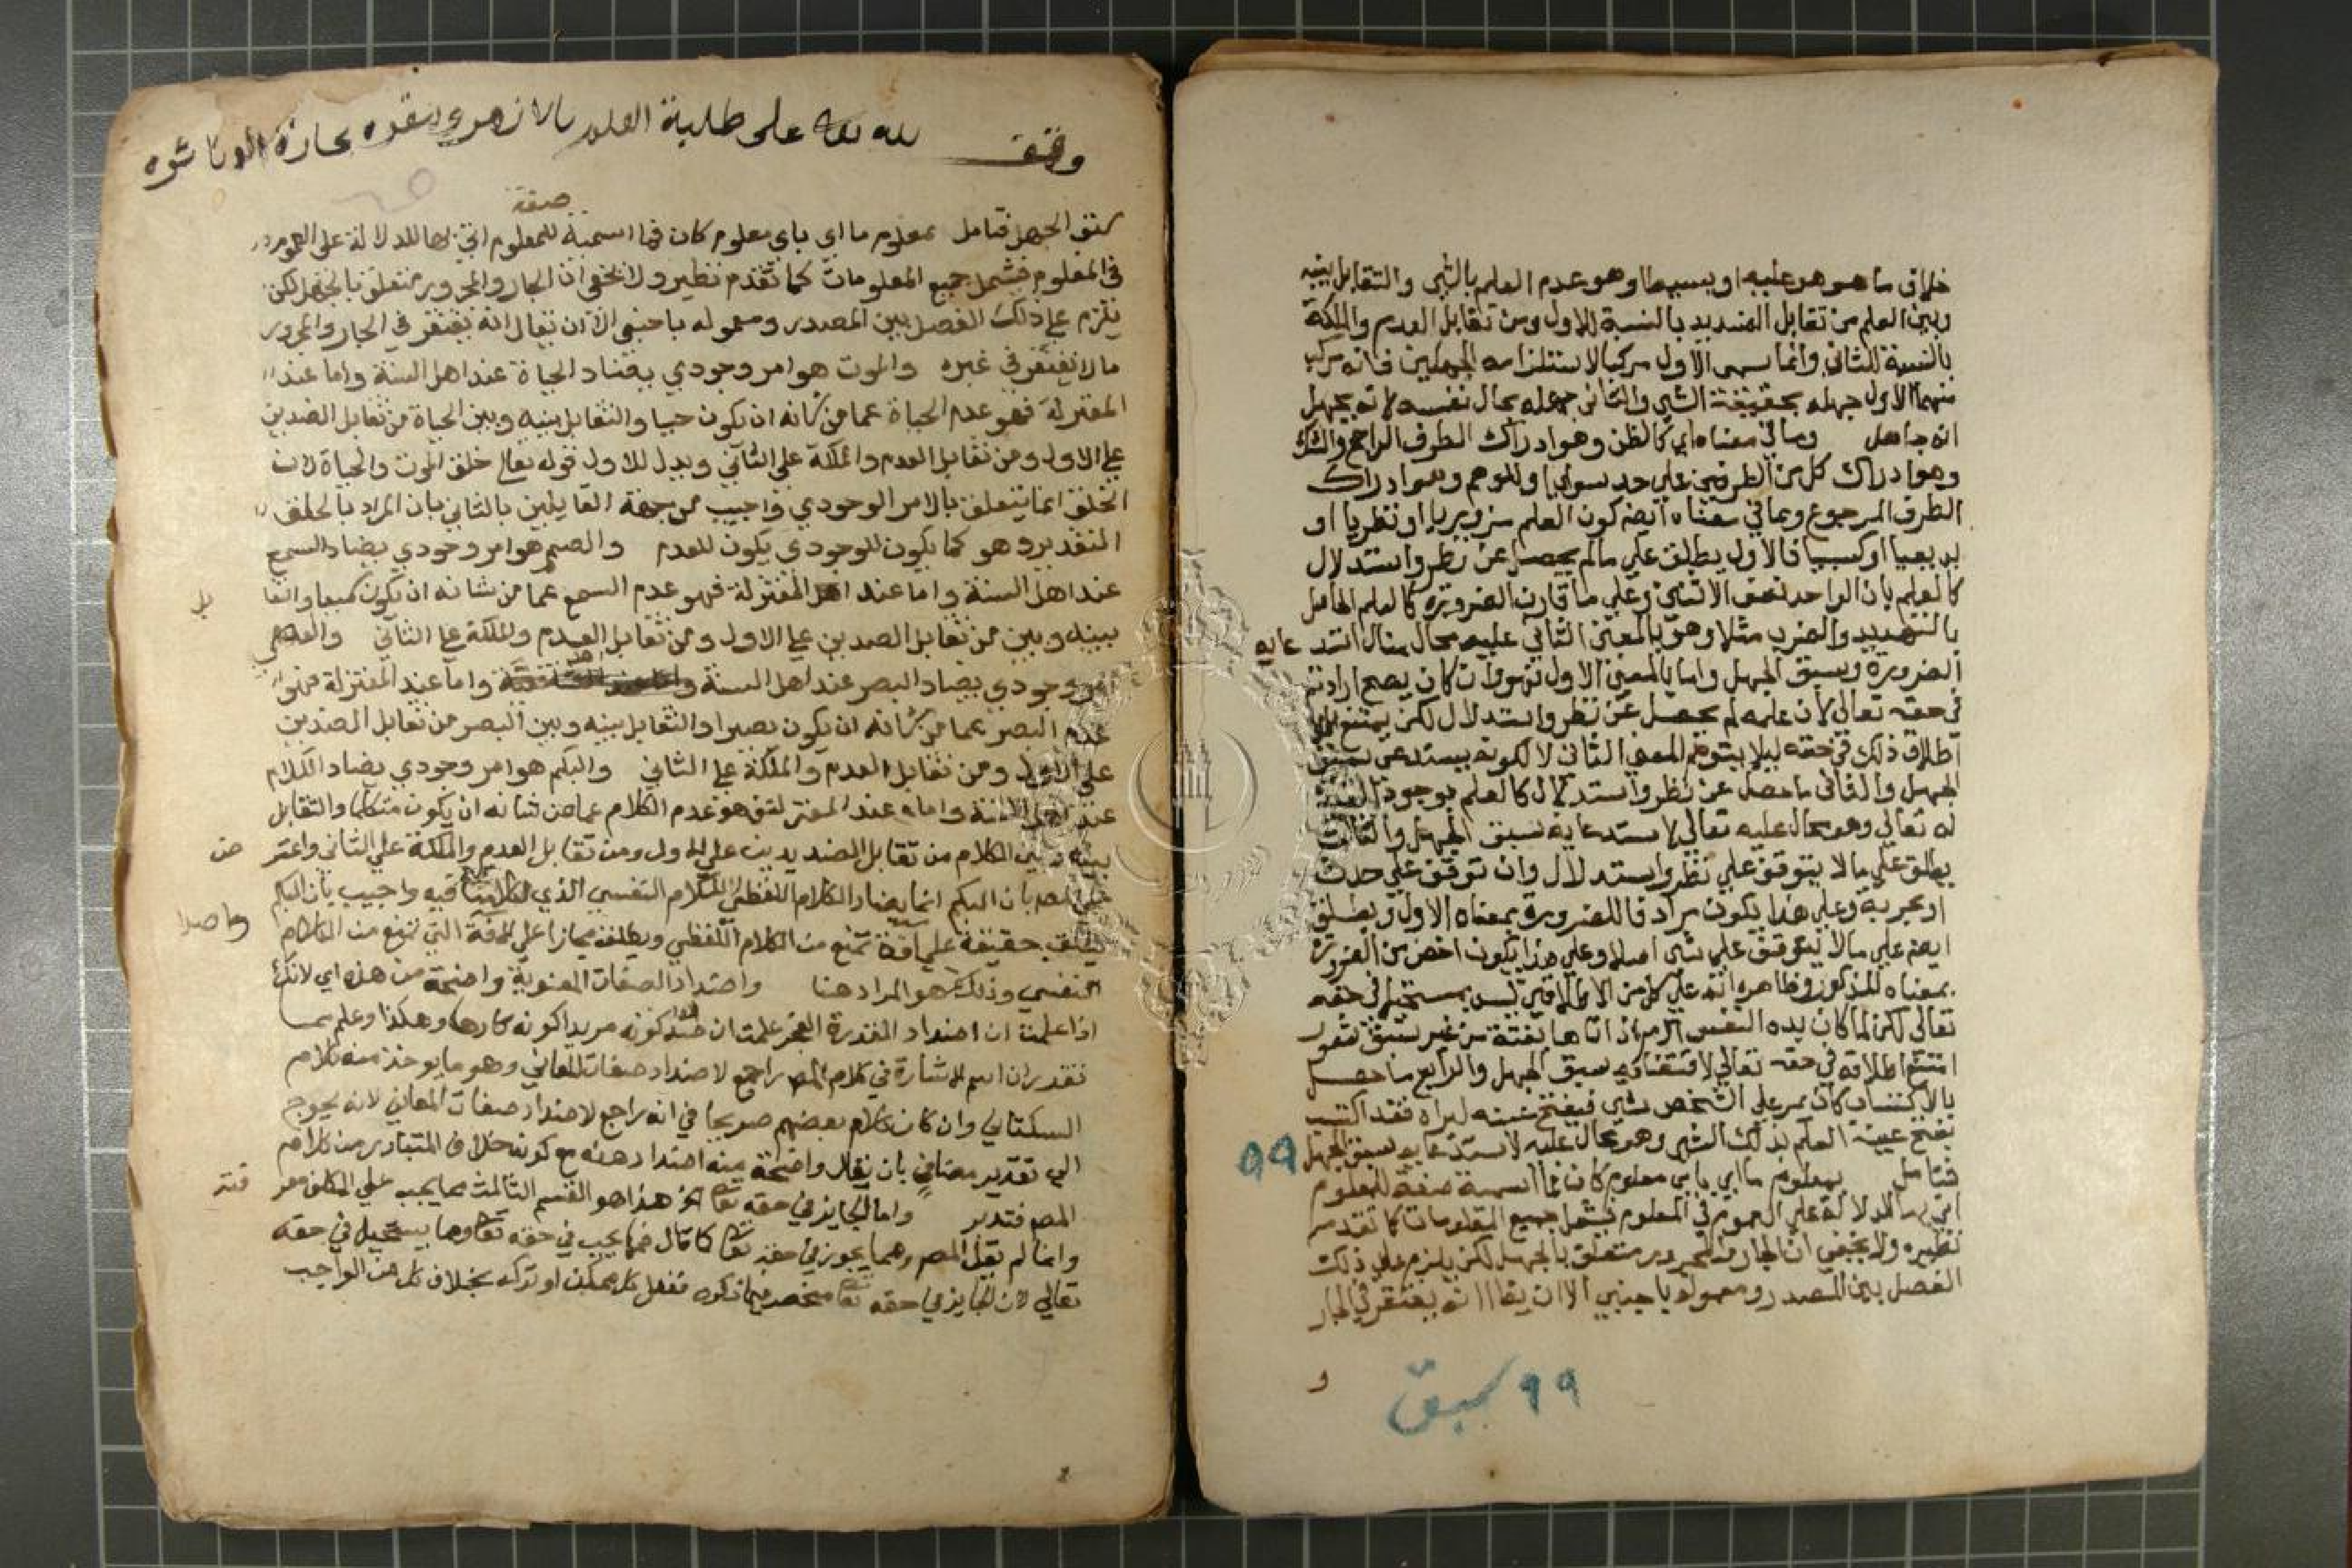 خلاف ما هو هو عليه او بسيطا وهو عدم العلم بالشي والتقابل بينه
وبين العلم من تقابل الضديد بالنسبة للاول ومن تقابل العدم والملكة
بالنسبة للثاني وانما سمي الاول مركبا لاستلزامه الجهلين فانه مركب
منهما الاول جهله بحقيقة الشي والثاني جهله بحال نفسه لانه يجهل
انه جاهل وما في معناه اي كالظن وهو ادراك الطرف الراجح والشك
وهو ادراك كل من الطرفين علي حد سواي والوهم وهو ادراك
الطرف المرجوع وما في معناه ايضه كون العلم ضروريا او نظريا او
بديهيا او كسبيا فالاول يطلق علي مالم يحصل عن نظر واستدلال
كالعلم بان الواحد نصف الاثنين وعلي ما قارن الضرورة كالعلم الحاصل
بالتهديد والضرب مثلا وهو بالمعني الثاني عليه محال تعالي لاستدعايه
الضرورة وسبق الجهل واما بالمعني الاول فهو وان كان يصح ارادته
في حقه تعالي لان علمه لم يحصل عن نظر واستدلال لكن يمتنع
اطلاق ذلك في حقه ليلا يتوهم المعني الثاني لا لكونه يستدعي سبق
الجهل والثاني ما حصل عن نظر واستدلال كالعلم بوجود القدرة
له تعالي وهو محال عليه تعالي لاستدعايه سبق الجهل والثالث
يطلق علي مالا يتوقف علي نظر واستدلال وان توقف علي حدث
او تجربة وعلي هذا يكون مرادفا للضرورة بمعناه الاول ويطلق
ايضه علي مالا يتوقف علي شي اصلا وعلي هذا يكون اخص من الضرورة
بمعناه المذكور وظاهره انه علي كل من الاطلاقين ليس بمستحيل في حقه
تعالي لكن لما كان بده النفس الامر اذا اتاها بغتة من غير سبق شعور
امتنع اطلاقه في حقه تعالي لاقتضايه سبق الجهل والرابع ما حصل
بالاكتساب كان يمر علي الشخص شي فيفتح عينه ليراه فقد اكتسب
بفتح عينه العلم بذلك الشي وهو محال عليه لاستدعايه سبق الجهل
فتامل بمعلوم ما اي باي معلوم كان فما اسمية صفة للمعلوم
اتي بها للدلالة علي العموم في المعلوم فيشمل جميع المعلومات كما تقدم
نظيره ولا يخفي ان الجار والمجرور متعلق بالجهل لكن يلزم علي ذلك
الفصل بين المصدر ومعموله باجنبي الا ان يقا انه يغتفر في الجار
و
٩٩
٩٩ سبق
وقف لله تعالى على طلبة العلم بالازهر
صفة
سبق الجهل فتامل بمعلوم ما اي باي معلوم كان فما اسمية للمعلوم اتي بها للدلالة علي العموم
في المعلوم فشمل جميع المعلومات كما تقدم نظيره ولا يخفي ان الجار والمجرور متعلق بالجهل لكن
يلزم علي ذلك الفصل بين المصدر ومعموله باجنبي الا ان يقال انه يغتفر في الجار والمجرور
مالا يغتفر في غيره والموت هو امر وجودي يضاد الحياة عند اهل السنة واما عند
المعتزلة فهو عدم الحياة عما من شانه ان يكون حيا والتقابل بينه وبين الحياة من تقابل الضدين
علي الاول ومن تقابل العدم والملكة علي الثاني ويدل للاول قوله تعالي خلق الموت والحياة لان
الخلق انما يتعلق بالامر الوجودي واجيب من جهة القايلين بالثاني بان المراد بالخلق
التقدير وهو كما يكون للوجودي يكون للعدم والصمم هو امر وجودي يضاد السمع
عند اهل السنة واما عند المعتزلة فهو عدم السمع عما من شانه ان يكون سميعا والتقا
بل
بينه وبين من تقابل الضدين علي الاول ومن تقابل العدم والملكة علي الثاني والعمي
امر وجودي يضاد البصر عند اهل السنة واما عند المعتزلة فهو
عدم البصر عما من شانه ان يكون بصيرا والتقابل بينه وبين البصر من تقابل الضدين
علي الاول ومن تقابل العدم والملكة علي الثاني والبكم هو امر وجودي يضاد الكلام
عند اهل السنة واما عند المعتزلة فهو عدم الكلام عما من شانه ان يكون متكلما والتقابل
بينه وبين الكلام من تقابل الضديدين علي الاول ومن تقابل العدم والملكة علي الثاني واعتر
ض
علي المص بان البكم انما يضاد الكلام اللفظي لا الكلام النفسي الذي الكلام فيه واجيب بان البكم
يطلق حقيقة علي افة تمنع من الكلام اللفظي ويطلق مجازا علي الافة التي تمنع من الكلام
النفسي وذلك هو المراد هنا واضداد الصفات المعنوية واضحة من هذه اي لانك
اذا علمت ان اضداد القدرة العجز علمت ان ضد كونه مريدا كونه كارها وهكذا وعلم مما
تقدر ان اسم الاشارة في كلام المص راجع لاضداد صفات المعاني وهو ما يوخذ منه كلام
السكتاني وان كان كلام بعضهم صريحا في انه راجع لاضداد صفات المعاني لانه يحوج
الي تقدير مضاف بان يقال واضحة منه اضداد هذه مع كونه خلاف المتبادر من كلام
المص فتدبر واما الجايز في حقه تعا الخ هذا هو القسم الثالث مما يجب علي المكلف معر
فته
وانما لم يقل المص وهما يجوز في حقه تعا كما قال فما يجب في حقه تعا وما يستحيل في حقه
تعالي لان الجايز في حقه تعا منحصر فيما ذكره ففعل كل ممكن او تركه بخلاف كل من الواجب